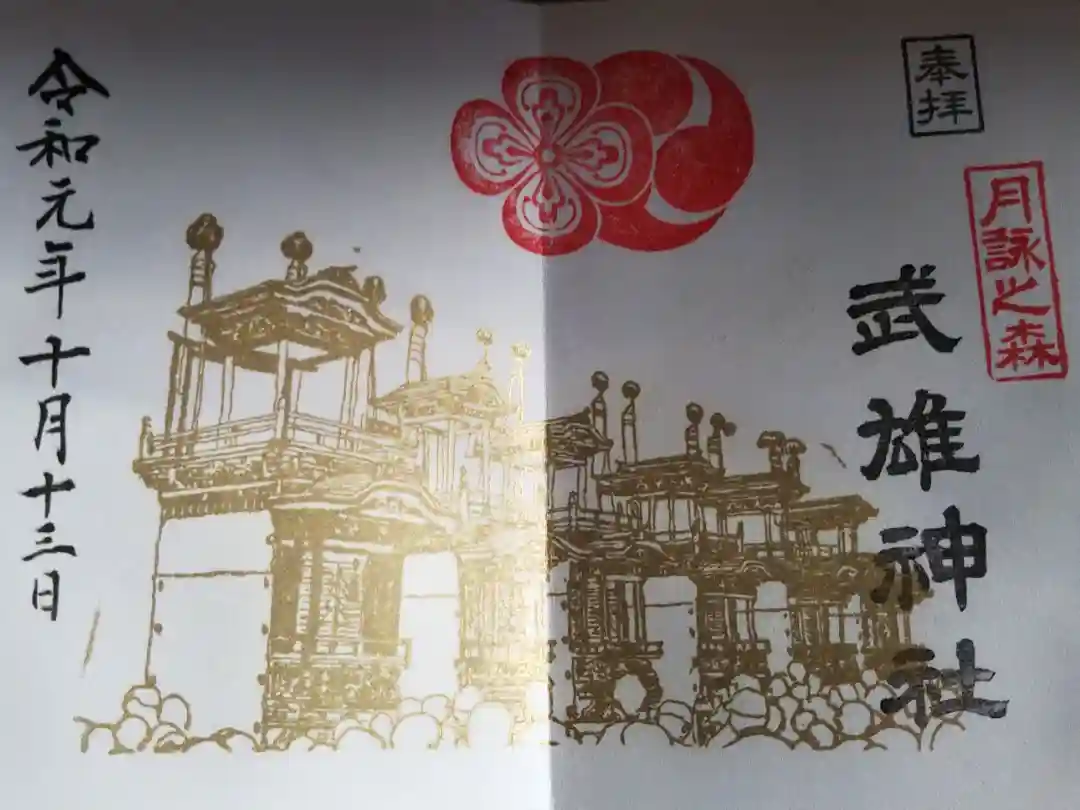 奉拝
月詠之森
武雄神社
令和元年十月十三日